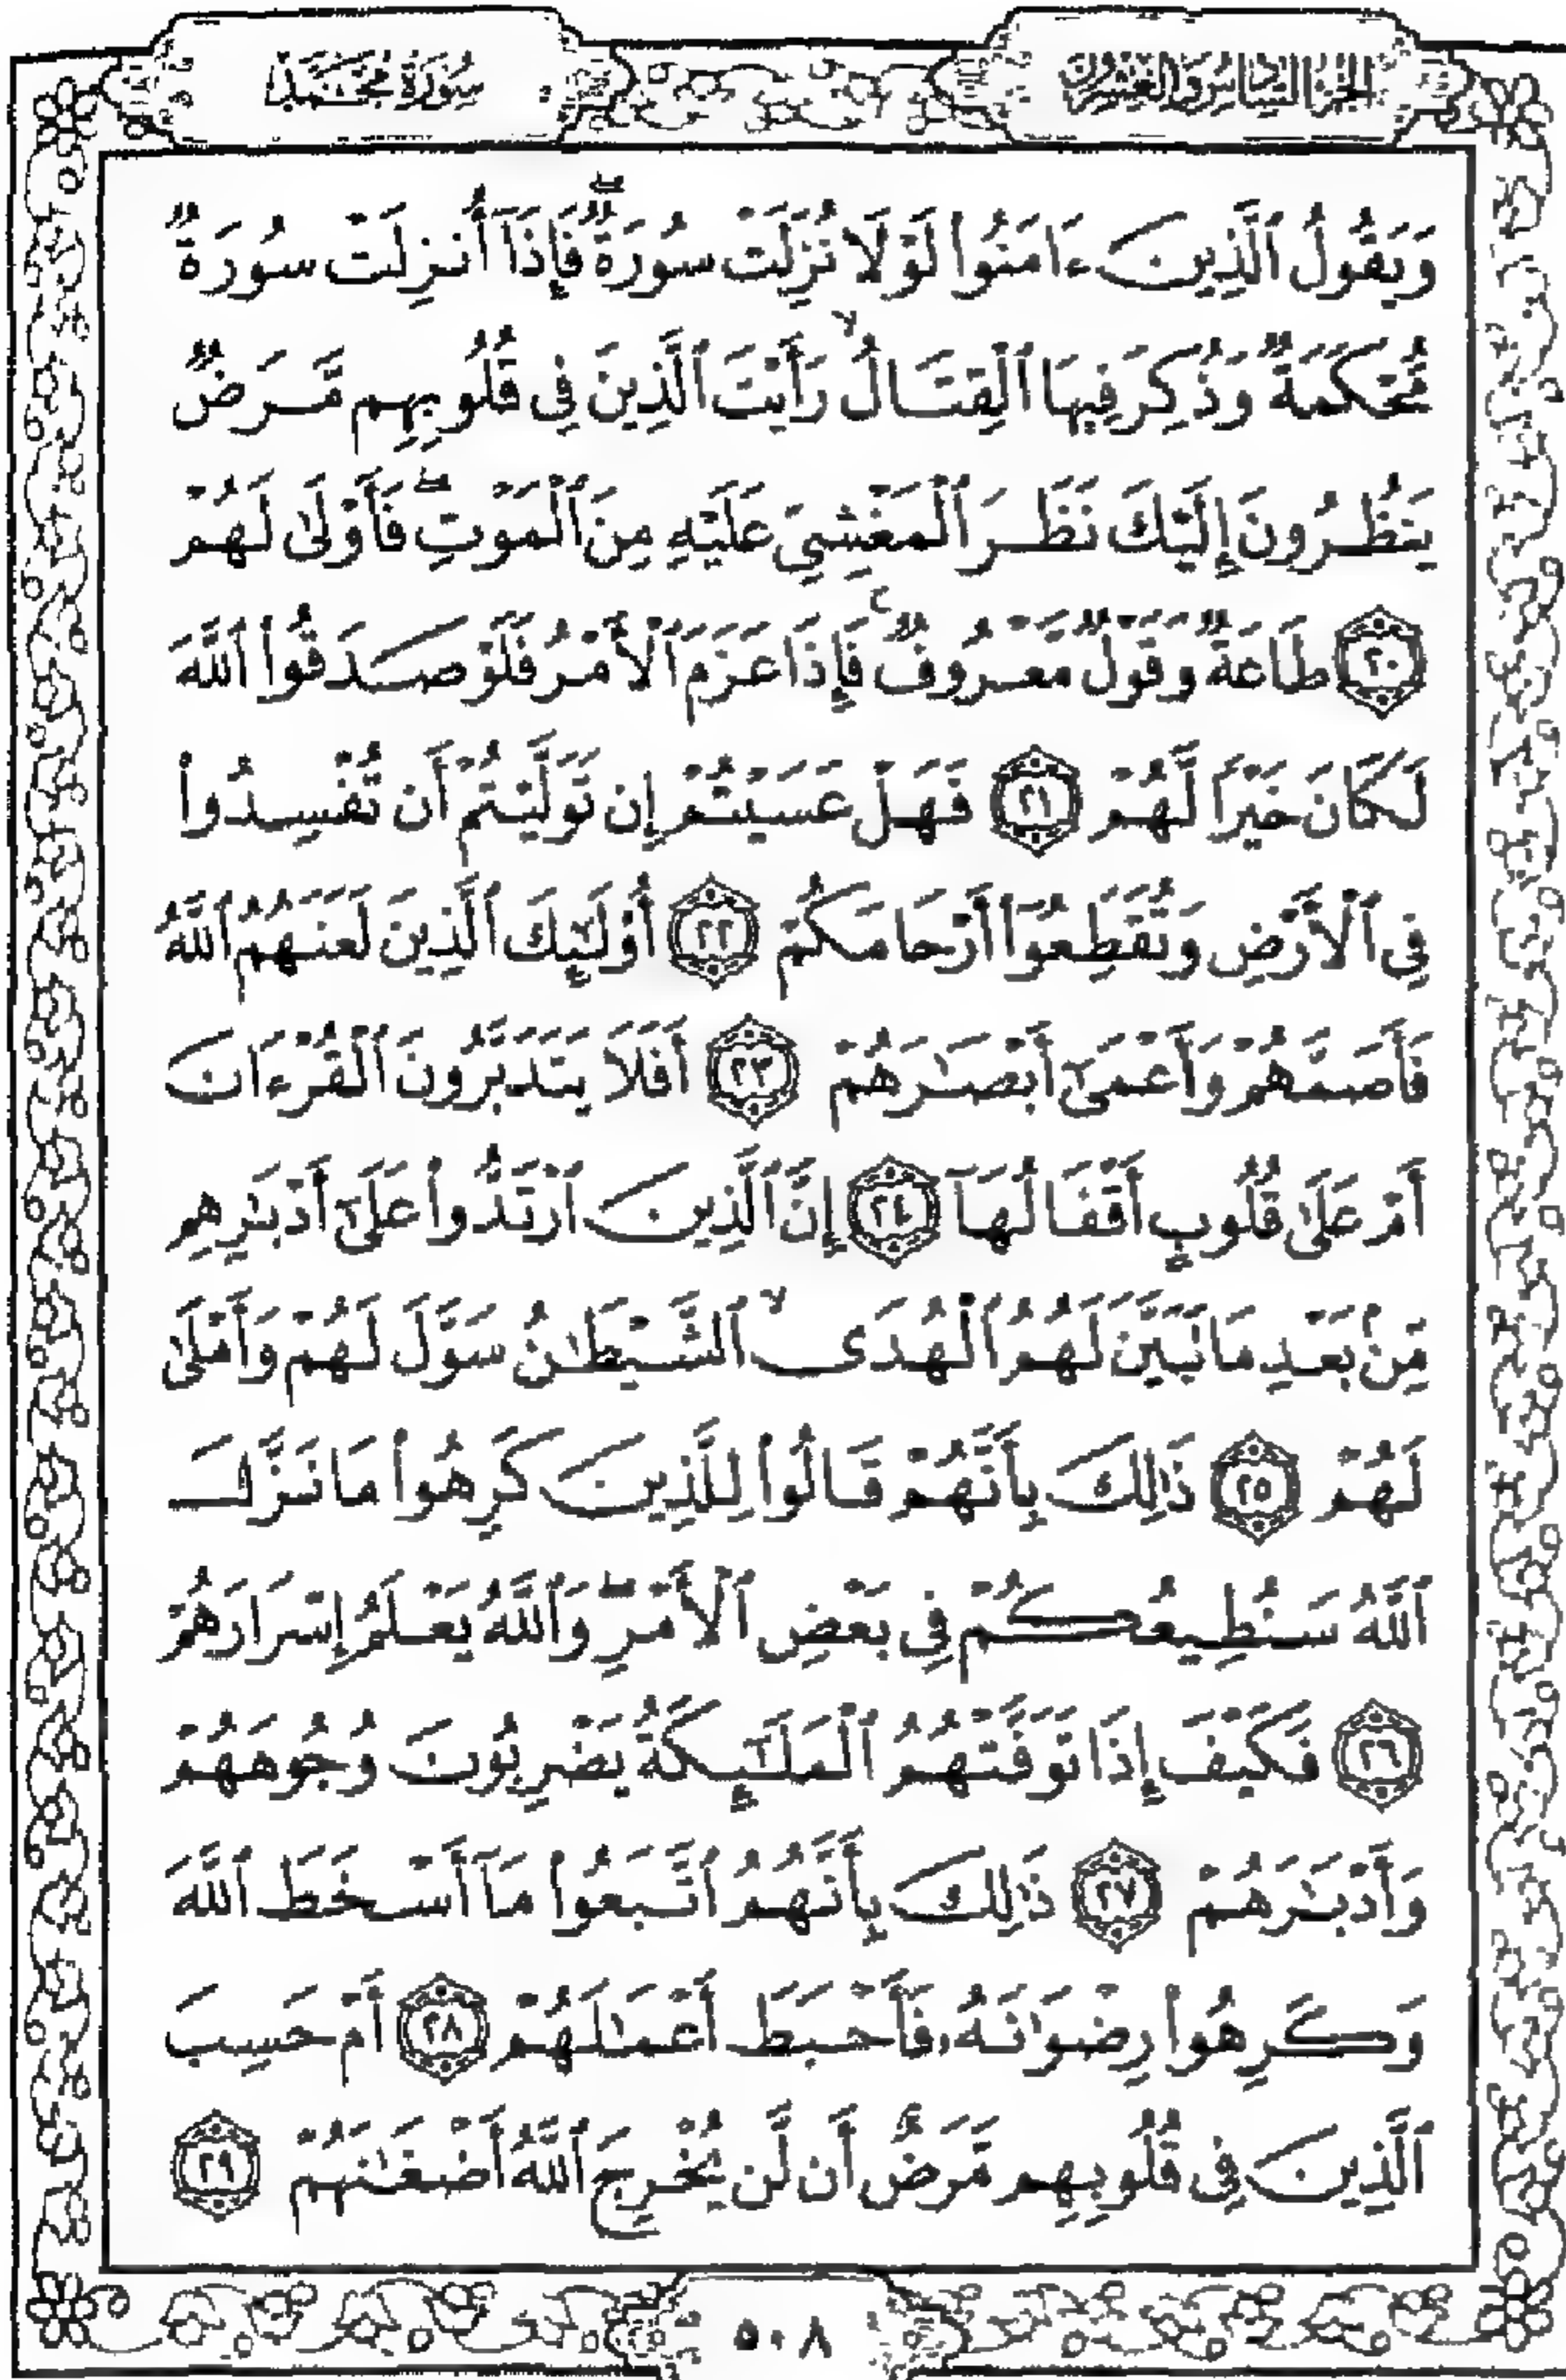 الجزء السادس والعشرون
سُورَةُ مُحَمَّد
وَيَقُولُ ٱلَّذِينَ ءَامَنُوا۟ لَوْلَا نُزِّلَتْ سُورَةٌ ۖ فَإِذَآ أُنزِلَتْ سُورَةٌ
مُّحْكَمَةٌ وَذُكِرَ فِيهَا ٱلْقِتَالُ ۙ رَأَيْتَ ٱلَّذِينَ فِى قُلُوبِهِم مَّرَضٌ
يَنظُرُونَ إِلَيْكَ نَظَرَ ٱلْمَغْشِىِّ عَلَيْهِ مِنَ ٱلْمَوْتِ ۖ فَأَوْلَىٰ لَهُمْ
﴿٢٠﴾ طَاعَةٌ وَقَوْلٌ مَّعْرُوفٌ ۚ فَإِذَا عَزَمَ ٱلْأَمْرُ فَلَوْ صَدَقُوا۟ ٱللَّهَ
لَكَانَ خَيْرًا لَّهُمْ ﴿٢١﴾ فَهَلْ عَسَيْتُمْ إِن تَوَلَّيْتُمْ أَن تُفْسِدُوا۟
فِى ٱلْأَرْضِ وَتُقَطِّعُوٓا۟ أَرْحَامَكُمْ ﴿٢٢﴾ أُو۟لَٰٓئِكَ ٱلَّذِينَ لَعَنَهُمُ ٱللَّهُ
فَأَصَمَّهُمْ وَأَعْمَىٰٓ أَبْصَٰرَهُمْ ﴿٢٣﴾ أَفَلَا يَتَدَبَّرُونَ ٱلْقُرْءَانَ
أَمْ عَلَىٰ قُلُوبٍ أَقْفَالُهَآ ﴿٢٤﴾ إِنَّ ٱلَّذِينَ ٱرْتَدُّوا۟ عَلَىٰٓ أَدْبَٰرِهِم
مِّنۢ بَعْدِ مَا تَبَيَّنَ لَهُمُ ٱلْهُدَى ۙ ٱلشَّيْطَٰنُ سَوَّلَ لَهُمْ وَأَمْلَىٰ
لَهُمْ ﴿٢٥﴾ ذَٰلِكَ بِأَنَّهُمْ قَالُوا۟ لِلَّذِينَ كَرِهُوا۟ مَا نَزَّلَ
ٱللَّهُ سَنُطِيعُكُمْ فِى بَعْضِ ٱلْأَمْرِ ۖ وَٱللَّهُ يَعْلَمُ إِسْرَارَهُمْ
﴿٢٦﴾ فَكَيْفَ إِذَا تَوَفَّتْهُمُ ٱلْمَلَٰٓئِكَةُ يَضْرِبُونَ وُجُوهَهُمْ
وَأَدْبَٰرَهُمْ ﴿٢٧﴾ ذَٰلِكَ بِأَنَّهُمُ ٱتَّبَعُوا۟ مَآ أَسْخَطَ ٱللَّهَ
وَكَرِهُوا۟ رِضْوَٰنَهُۥ فَأَحْبَطَ أَعْمَٰلَهُمْ ﴿٢٨﴾ أَمْ حَسِبَ
ٱلَّذِينَ فِى قُلُوبِهِم مَّرَضٌ أَن لَّن يُخْرِجَ ٱللَّهُ أَضْغَٰنَهُمْ ﴿٢٩﴾
٥٠٨